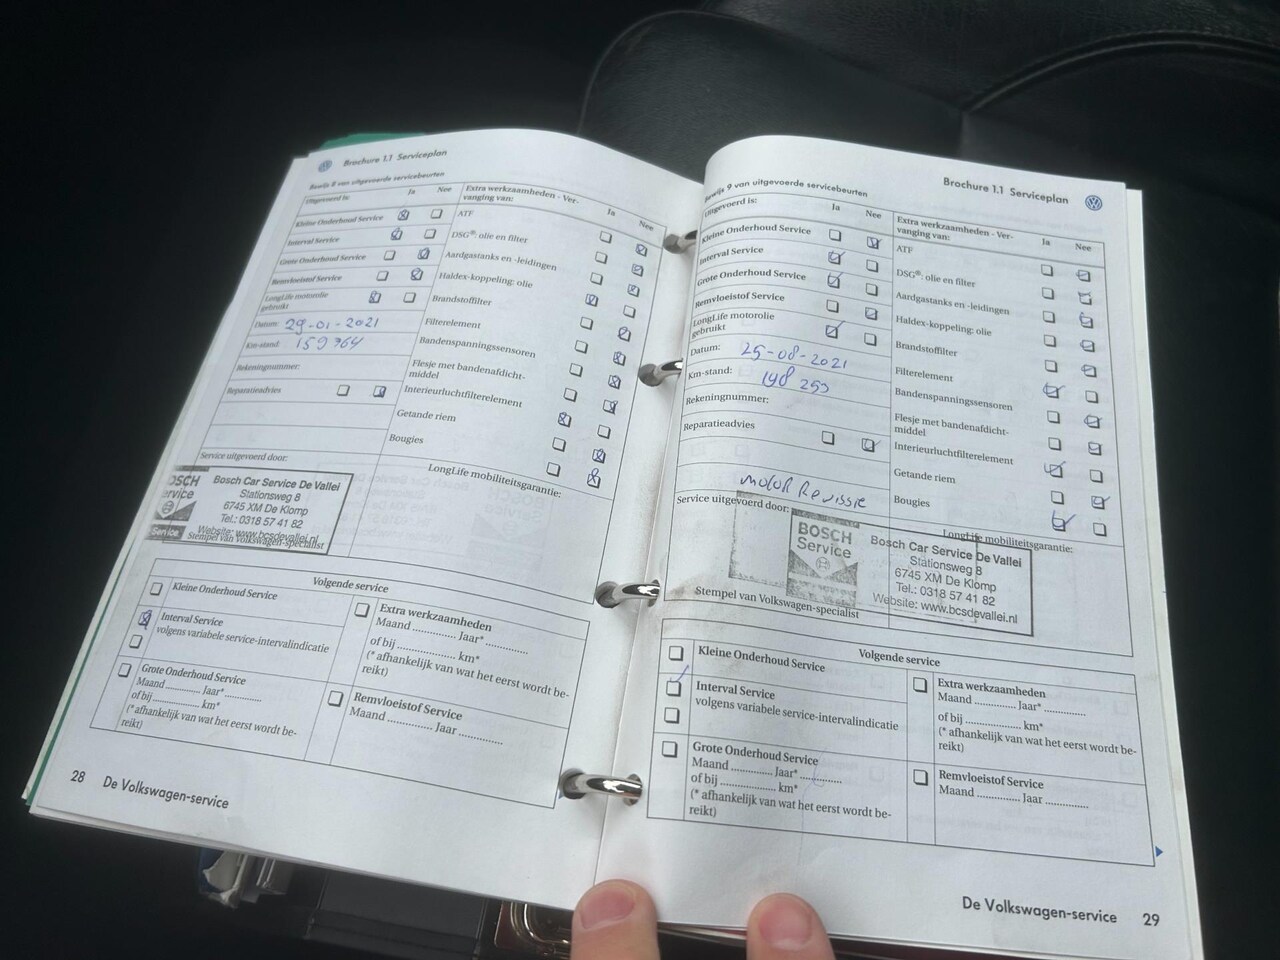 Brochure 1.1 Serviceplan
Bewijs 8 van uitgevoerde servicebeurten
Uitgevoerd is:
Ja
Nee
Kleine Onderhoud Service
Interval Service
Grote Onderhoud Service
Remvloeistof Service
LongLife motorolie
gebruikt
Datum: 29-01-2021
Km-stand: 159764
Rekeningnummer:
Reparatieadvies
Extra werkzaamheden - Ver-
vanging van:
Ja
Nee
ATF
DSG®: olie en filter
Aardgastanks en -leidingen
Haldex-koppeling: olie
Brandstoffilter
Filterelement
Bandenspanningssensoren
Flesje met bandenafdicht-
middel
Interieurluchtfilterelement
Getande riem
Bougies
Service uitgevoerd door:
LongLife mobiliteitsgarantie:
BOSCH
Service
Bosch Car Service De Vallei
Stationsweg 8
6745 XM De Klomp
Tel.: 0318 57 41 82
Website: www.bcsdevallei.nl
Service
Stempel van Volkswagen-specialist
Volgende service
Kleine Onderhoud Service
Interval Service
volgens variabele service-intervalindicatie
Grote Onderhoud Service
Maand ............ Jaar* ............
of bij ............ km*
(* afhankelijk van wat het eerst wordt be-
reikt)
Extra werkzaamheden
Maand ............ Jaar* ............
of bij ............ km*
(* afhankelijk van wat het eerst wordt be-
reikt)
Remvloeistof Service
Maand ............ Jaar ............
28 De Volkswagen-service
Brochure 1.1 Serviceplan
Bewijs 9 van uitgevoerde servicebeurten
Uitgevoerd is:
Ja
Nee
Kleine Onderhoud Service
Interval Service
Grote Onderhoud Service
Remvloeistof Service
LongLife motorolie
gebruikt
Datum: 25-08-2021
Km-stand:
Rekeningnummer:
Reparatieadvies
motor Revissie
Extra werkzaamheden - Ver-
vanging van:
Ja
Nee
ATF
DSG®: olie en filter
Aardgastanks en -leidingen
Haldex-koppeling: olie
Brandstoffilter
Filterelement
Bandenspanningssensoren
Flesje met bandenafdicht-
middel
Interieurluchtfilterelement
Getande riem
Bougies
Service uitgevoerd door:
LongLife mobiliteitsgarantie:
BOSCH
Service
Bosch Car Service De Vallei
Stationsweg 8
6745 XM De Klomp
Tel.: 0318 57 41 82
Website: www.bcsdevallei.nl
Stempel van Volkswagen-specialist
Volgende service
Kleine Onderhoud Service
Interval Service
volgens variabele service-intervalindicatie
Grote Onderhoud Service
Maand ............ Jaar* ............
of bij ............ km*
(* afhankelijk van wat het eerst wordt be-
reikt)
Extra werkzaamheden
Maand ............ Jaar* ............
of bij ............ km*
(* afhankelijk van wat het eerst wordt be-
reikt)
Remvloeistof Service
Maand ............ Jaar ............
De Volkswagen-service 29